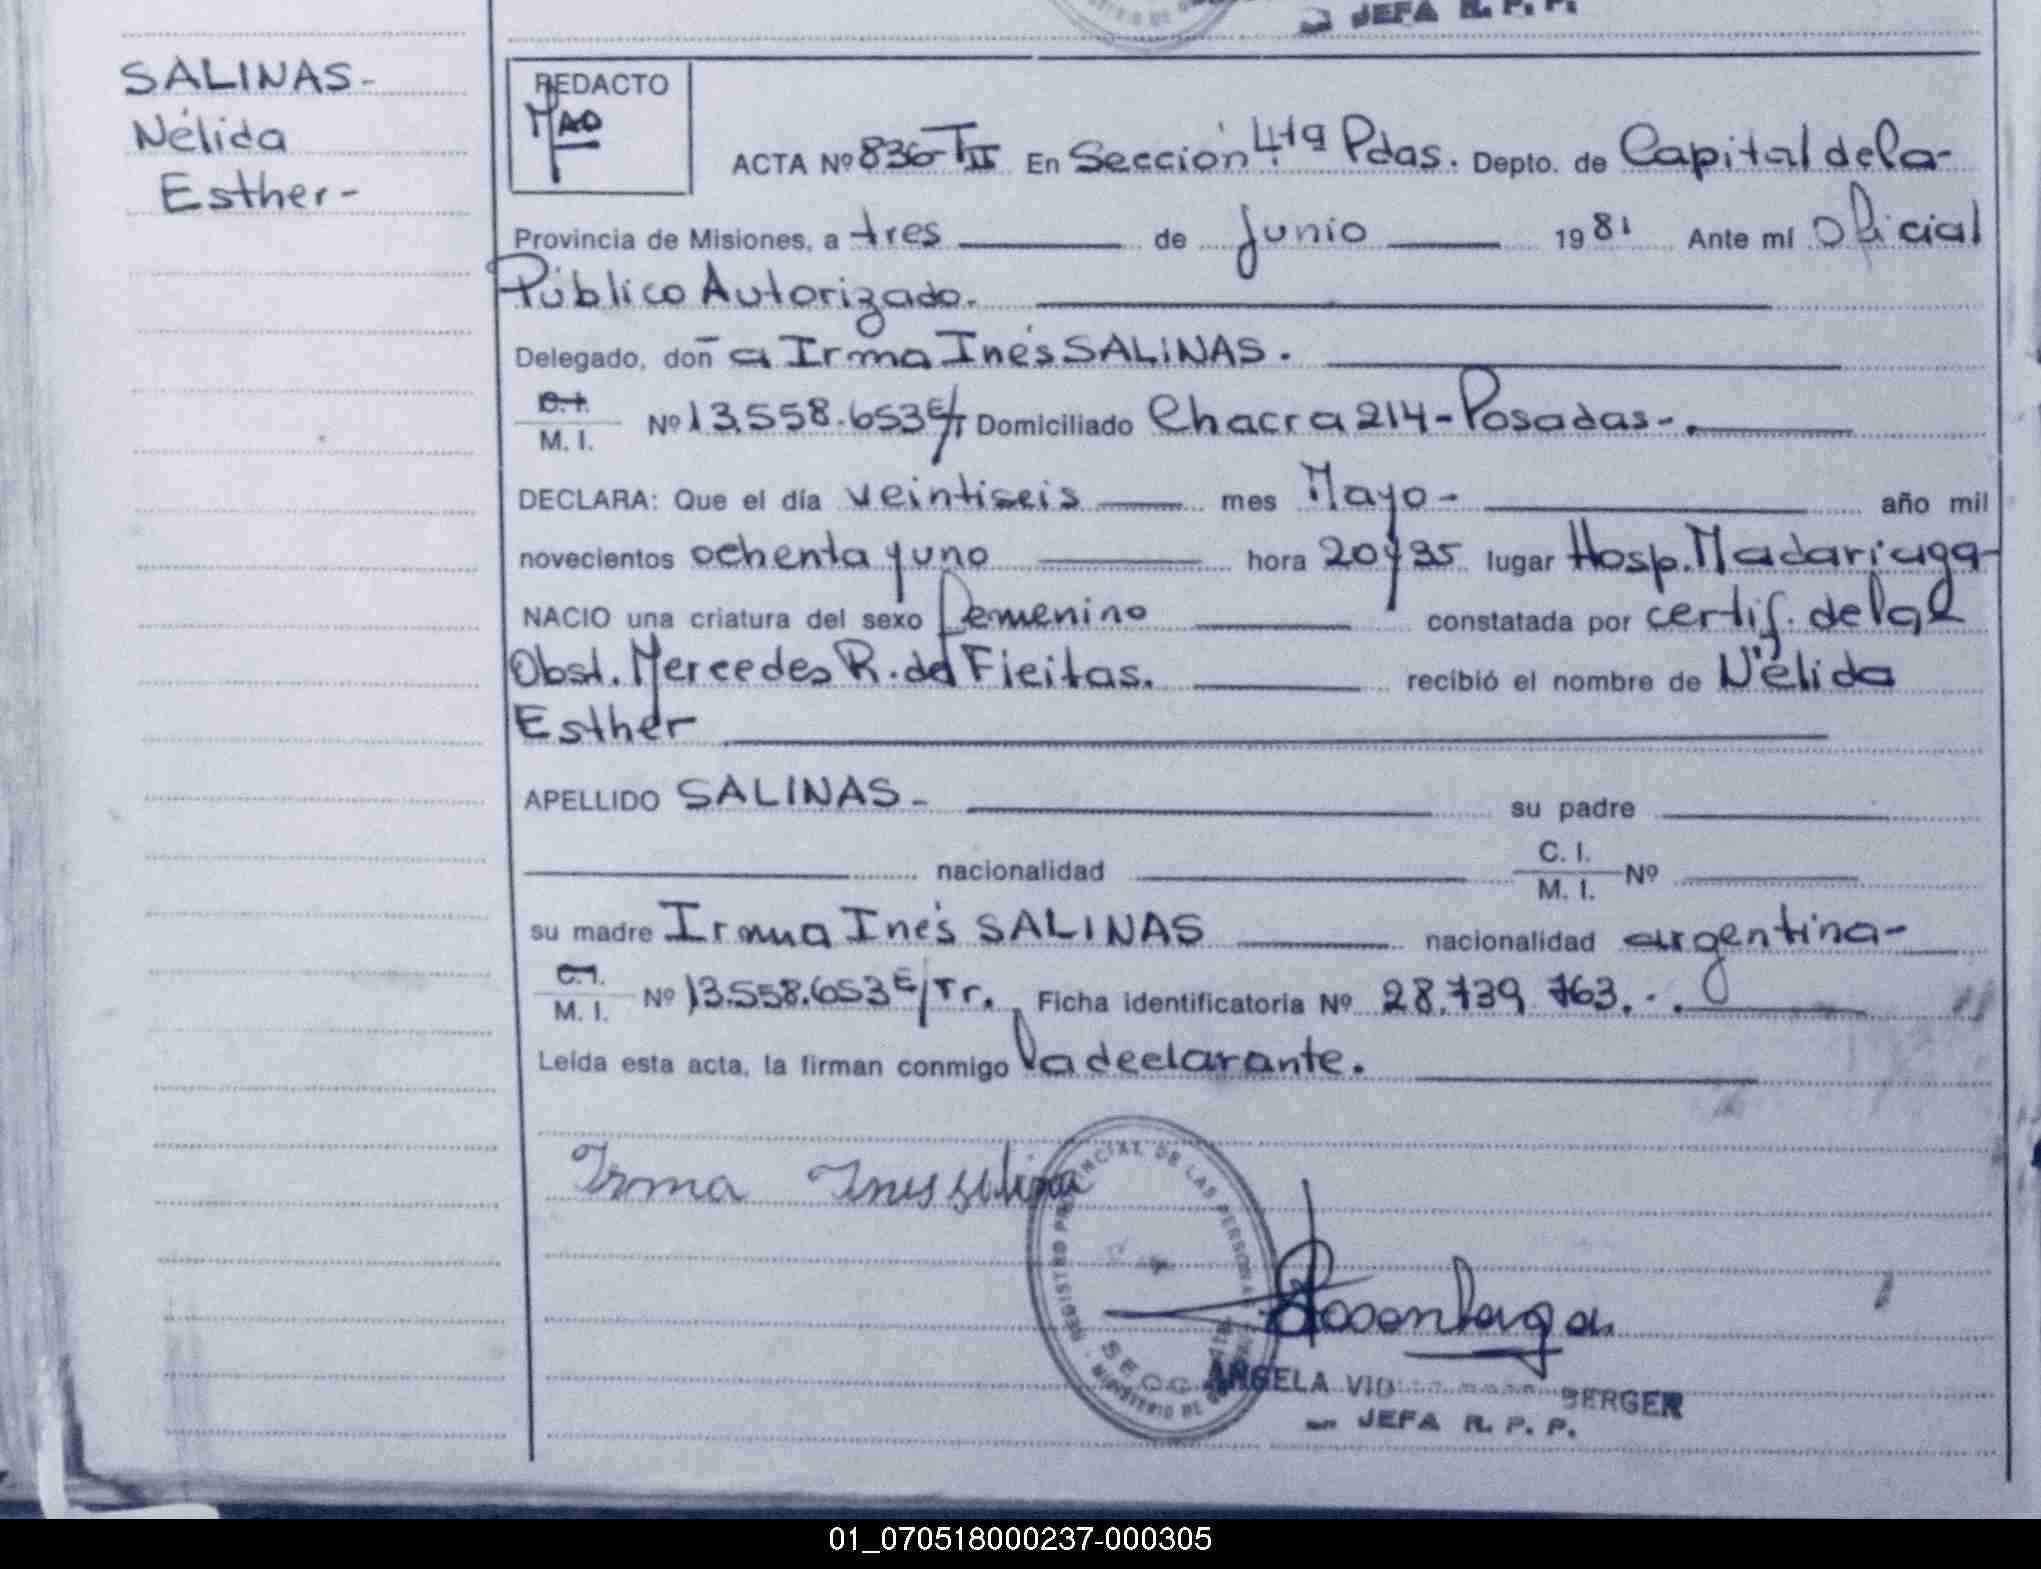 JEFA R. P. P.
SALINAS-
Nélida
Esther-
REDACTO
ACTA Nº 836-TII En Sección 4ta Pdas. Depto. de Capital de la-
Provincia de Misiones, a tres de Junio 1981 Ante mí Oficial
Público Autorizado.
Delegado, don a Irma Inés SALINAS.
C. I.
M. I. Nº 13.558.653 E/T Domiciliado Chacra 214-Posadas-.
DECLARA: Que el día veintiseis mes Mayo- año mil
novecientos ochenta y uno hora 20 y 35 lugar Hosp. Madariaga-
NACIO una criatura del sexo Femenino constatada por certif. de la
Obst. Mercedes R. de Fleitas. recibió el nombre de Nélida
Esther
APELLIDO SALINAS- su padre
nacionalidad C. I. / M. I. Nº
su madre Irma Inés SALINAS nacionalidad argentina-
C. I.
M. I. Nº 13.558.653 E/Tr. Ficha identificatoria Nº 28.739.763.-.
Leída esta acta, la firman conmigo la declarante.
Irma Ines Salina
REGISTRO PROVINCIAL DE LAS PERSONAS
MINISTERIO DE
ANGELA VID BERGER
JEFA R. P. P.
01_070518000237-000305